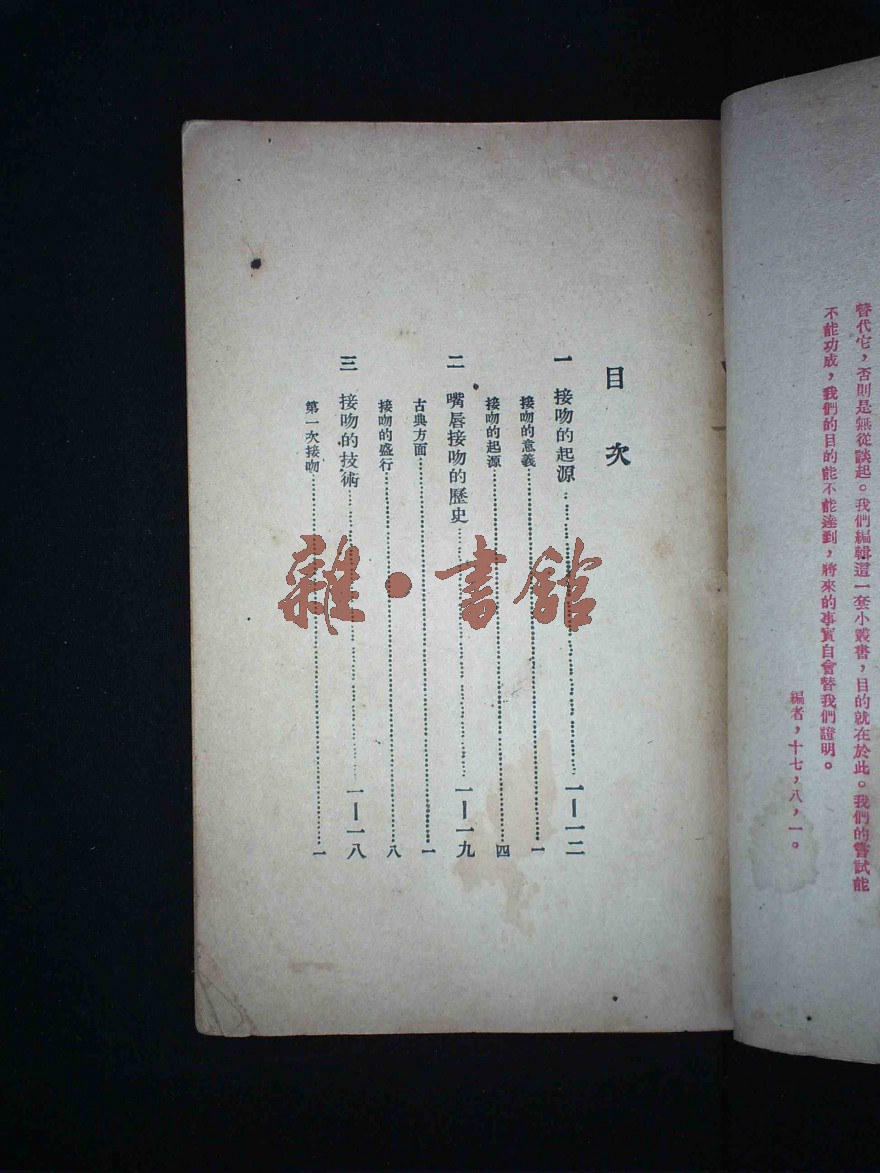 替代它，否則是無從談起。我們編輯這一套小叢書，目的就在於此。我們的嘗試能
不能功成，我們的目的能不能達到，將來的事實自會替我們證明。
編者，十七，八，一。
目次
一 接吻的起源……一—一二
接吻的意義……一
接吻的起源……四
二 嘴唇接吻的歷史……一—一九
古典方面……一
接吻的盛行……八
三 接吻的技術……一—一八
第一次接吻……一
雜·書館